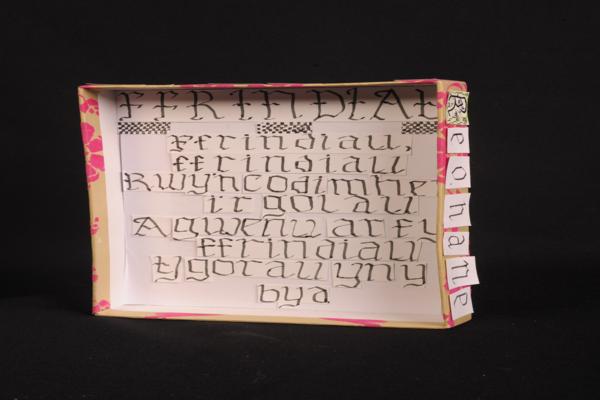 FFRINDIAU
Ffrindiau,
ffrindiau
Rwy'n codi mhe
ir golau
A gwenu ar fy
ffrindiau
Y gorau yn y
byd.
Reohane